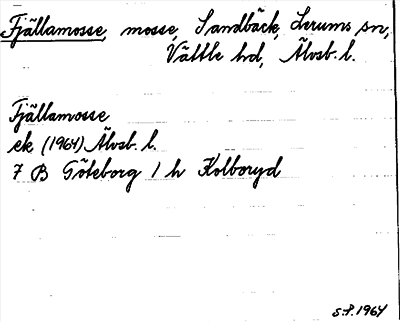 Fjällamosse, mosse, Sandbäck, Lerums sn,
Vättle hd, Älvsb. l.
Fjällamosse
ek (1964) Älvsb. l.
7 B Göteborg 1 h Kolboryd
S.P. 1964